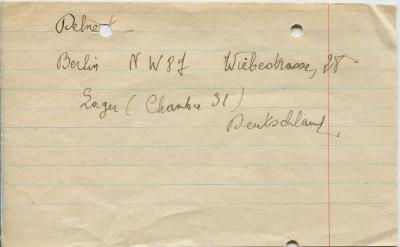 Berlin N W 87 Wiebestrasse, 38
Lager (Chambre 31)
Deutschland,